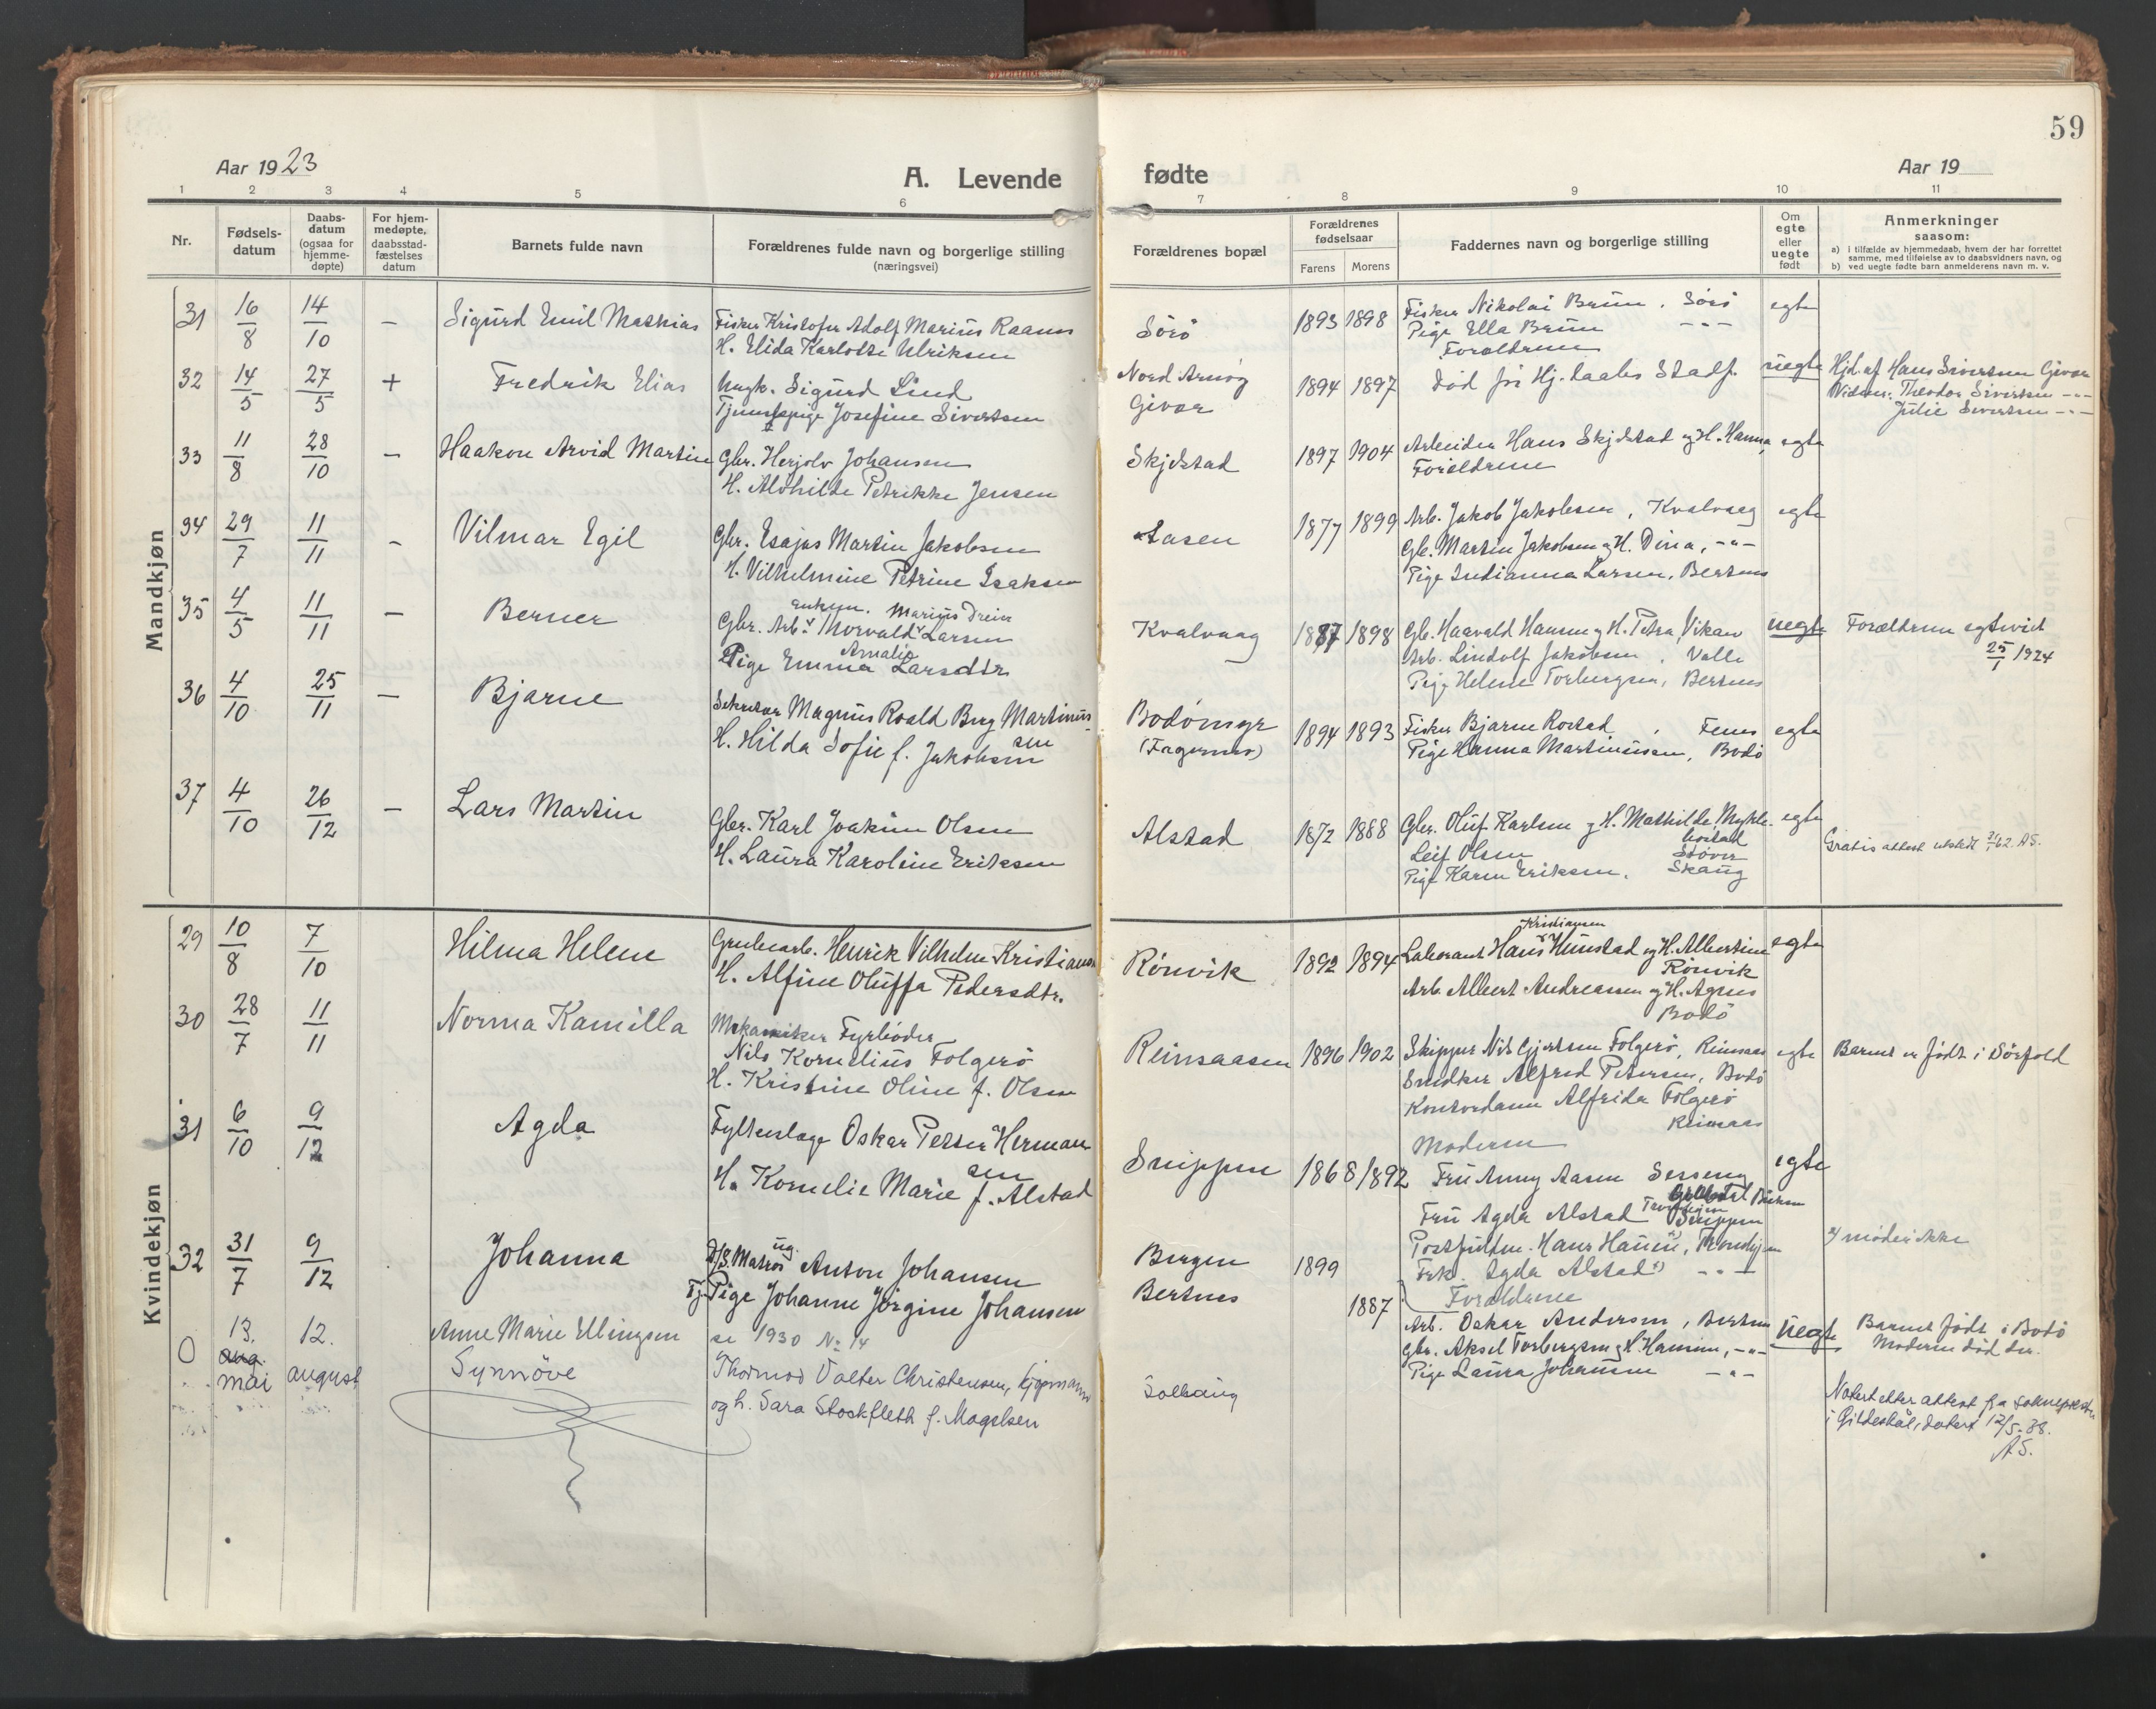 59
Aar 1923
A. Levende
fødte
Aar 19
1 2 3 4 5 6 7 8 9 10 11
Nr.
Fødsels-
datum
Daabs-
datum
(ogsaa for
hjemme-
døpte)
For hjem-
medøpte,
daabsstad-
fæstelses
datum
Barnets fulde navn
Forældrenes fulde navn og borgerlige stilling
(næringsvei)
Forældrenes bopæl
Forældrenes
fødselsaar
Farens Morens
Faddernes navn og borgerlige stilling
Om
egte
eller
uegte
født
Anmerkninger
saasom:
a) i tilfælde av hjemmedaab, hvem der har forrettet
samme, med tilføielse av to daabsvidners navn, og
b) ved uegte fødte barn anmelderens navn m. v.
Mandkjøn
31 16/8 14/10 - Sigurd Emil Mathias
Fisker Kristofer Adolf Marius Raanes
H. Elida Karlotte Ulriksen
Sörö 1893 1898
Fisker Nikolai Bruun. Sörö
Pige Ella Bruun -"-
Forældrene
egte
32 14/5 27/5 + Fredrik Elias
Ungk. Sigurd Lind
Tjenestepige Josefine Sivertsen
Nord Arnöy
Givær
1894 1897
Död før Hj. daabs Stadf.
uegte
Hjd. af Hans Sivertsen Givær
Vidner: Theodor Sivertsen -"-
Julie Sivertsen -"-
33 11/8 28/10 - Haakon Arvid Martin
Gbr. Herjolv Johansen
H. Alvhilde Petrikke Jensen
Skjelstad 1897 1904
Arbeider Hans Skjelstad og H. Hanna,
Forældrene
egte
34 29/7 11/11 - Vilmar Egil
Gbr. Esajas Martin Jakobsen
H. Vilhelmine Petrine Isaksen
Aasen 1877 1899
Arb. Jakob Jakobsen, Kvalvaag
Gb. Martin Jakobsen og H. Dina, -"-
Pige Indianna Larsen, Bertnes
egte
35 4/5 11/11 - Berner
enkem. Marius Drein
Gbr. Arb. Thorvald Larsen
Amalie
Pige Emma Larsdtr
Kvalvaag 1887 1898
Gb. Haavald Hansen og H. Petra, Vikan
Arb. Lindolf Jakobsen, Valle
Pige Helene Torbergsen, Bertnes
uegte
Forældrene egteviet
25/1 1924
36 4/10 25/11 - Bjarne
Sekretær Magnus Roald Berg Martinus-
sen
H. Hilda Sofie f. Jakobsen
Bodömyr
(Fagernes)
1894 1893
Fisker Bjarne Rostad, Fenes
Pige Hanna Martinussen, Bodö
egte
37 4/10 26/12 - Lars Martin
Gbr. Karl Joakim Olsen
H. Laura Karoline Eriksen
Alstad 1872 1888
Gbr. Oluf Karlsen og H. Mathilde Mykle-
bostad
Leif Olsen Støver
Pige Karen Eriksen. Skaug
egte
Gratis attest utstedt 21/1 62. AS.
Kvindekjøn
29 10/8 7/10 Hilma Helene
Grubearb. Henrik Vilhelm Kristiansen
H. Alfine Oluffa Pedersdtr.
Rönvik 1892 1894
Kristiansen
Laborant Hans Hunstad og H. Albertine
Rönvik
Arb. Albert Andreassen og H. Agnes
Bodö
egte
30 28/7 11/11 Norma Kamilla
Mekaniker Fyrböder
Nils Kornelius Folgerö
H. Kristine Oline f. Olsen
Reinsaasen 1896 1902
Skipper Nils Gjertsen Folgerö, Reinsaas
Snedker Alfred Petersen, Bodö
Kontordame Alfrida Folgerö
Reinsaas
Moderen
egte
Barnet er født i Sörfold
31 6/10 9/12 Agda
Fylkeslæge Oskar Petter Herman-
sen
H. Kornelie Marie f. Alstad
Snippen 1868/1892
Fru Anny Aasen
Fru Agda Alstad Snippen
Postfuldm. Hans Hauen, Trondhjem
Frk. Agda Alstad 2) -"-
egte
2) møder ikke
32 31/7 9/12 Johanna
ug.
D/S. Matros Anton Johansen
Tj. Pige Johanne Jörgine Johansen
Bergen 1899
Bertnes 1887
Forældrene
Arb. Oskar Andersen, Bertnes
Gbr. Aksel Torbergsen og H. Hansine, -"-
Pige Laura Johansen -"-
Uegte
Barnet født i Bodö
Moderen død der.
0 13. aug. mai 12. august
Anne Marie Ellingsen se 1930 No 14
Synnöve
Thormod Valter Christensen, kjøpmann
og h. Sara Stockfleth f. Magelsen
Solhaug
Notert etter attest fra soknepresten
i Gildeskål, datert 12/5-38.
AS.